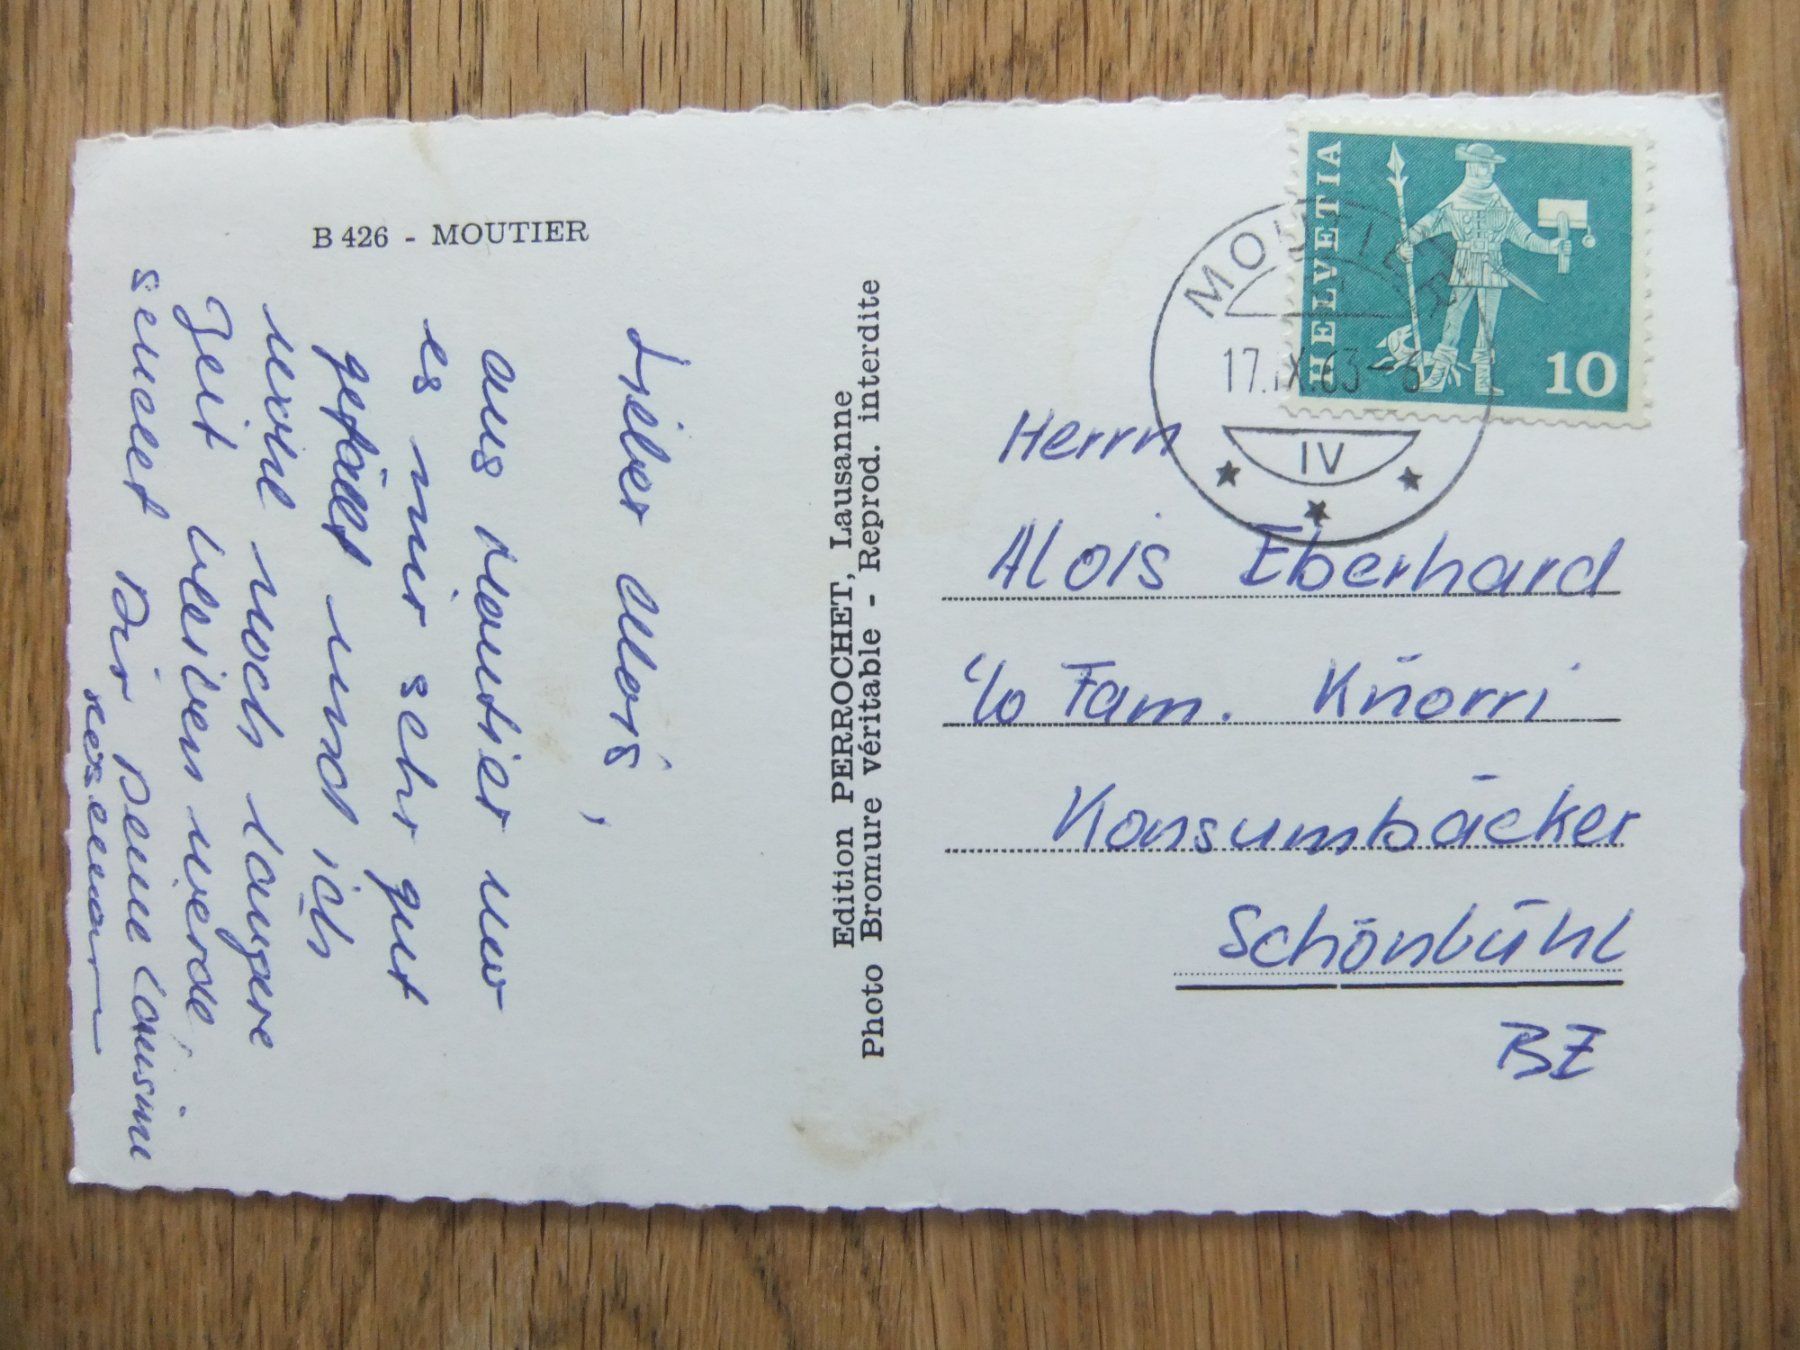 B 426 - MOUTIER
Lieber Alois,
aus Moutier wo
es mir sehr gut
gefällt und ich
wohl noch längere
Zeit bleiben werde,
sendet Dir Deine
Edition PERROCHET, Lausanne
Photo Bromure véritable - Reprod. interdite
HELVETIA
10
MOUTIER
17.IX.63-
IV
Herrn
Alois Eberhard
c/o Fam. Knorri
Konsumbäcker
Schönbühl